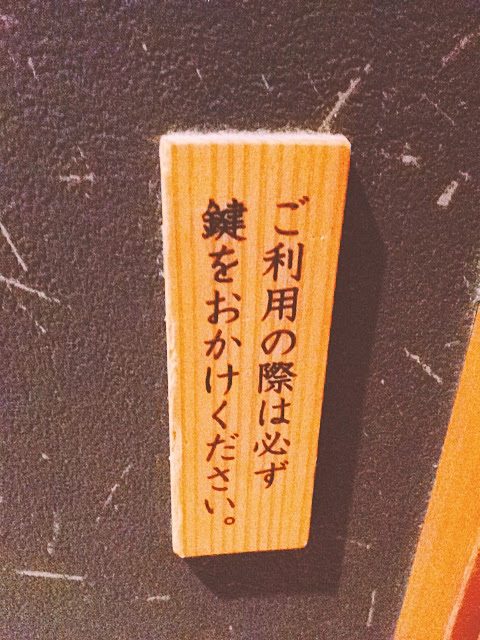 ご利用の際は必ず
鍵をおかけください。